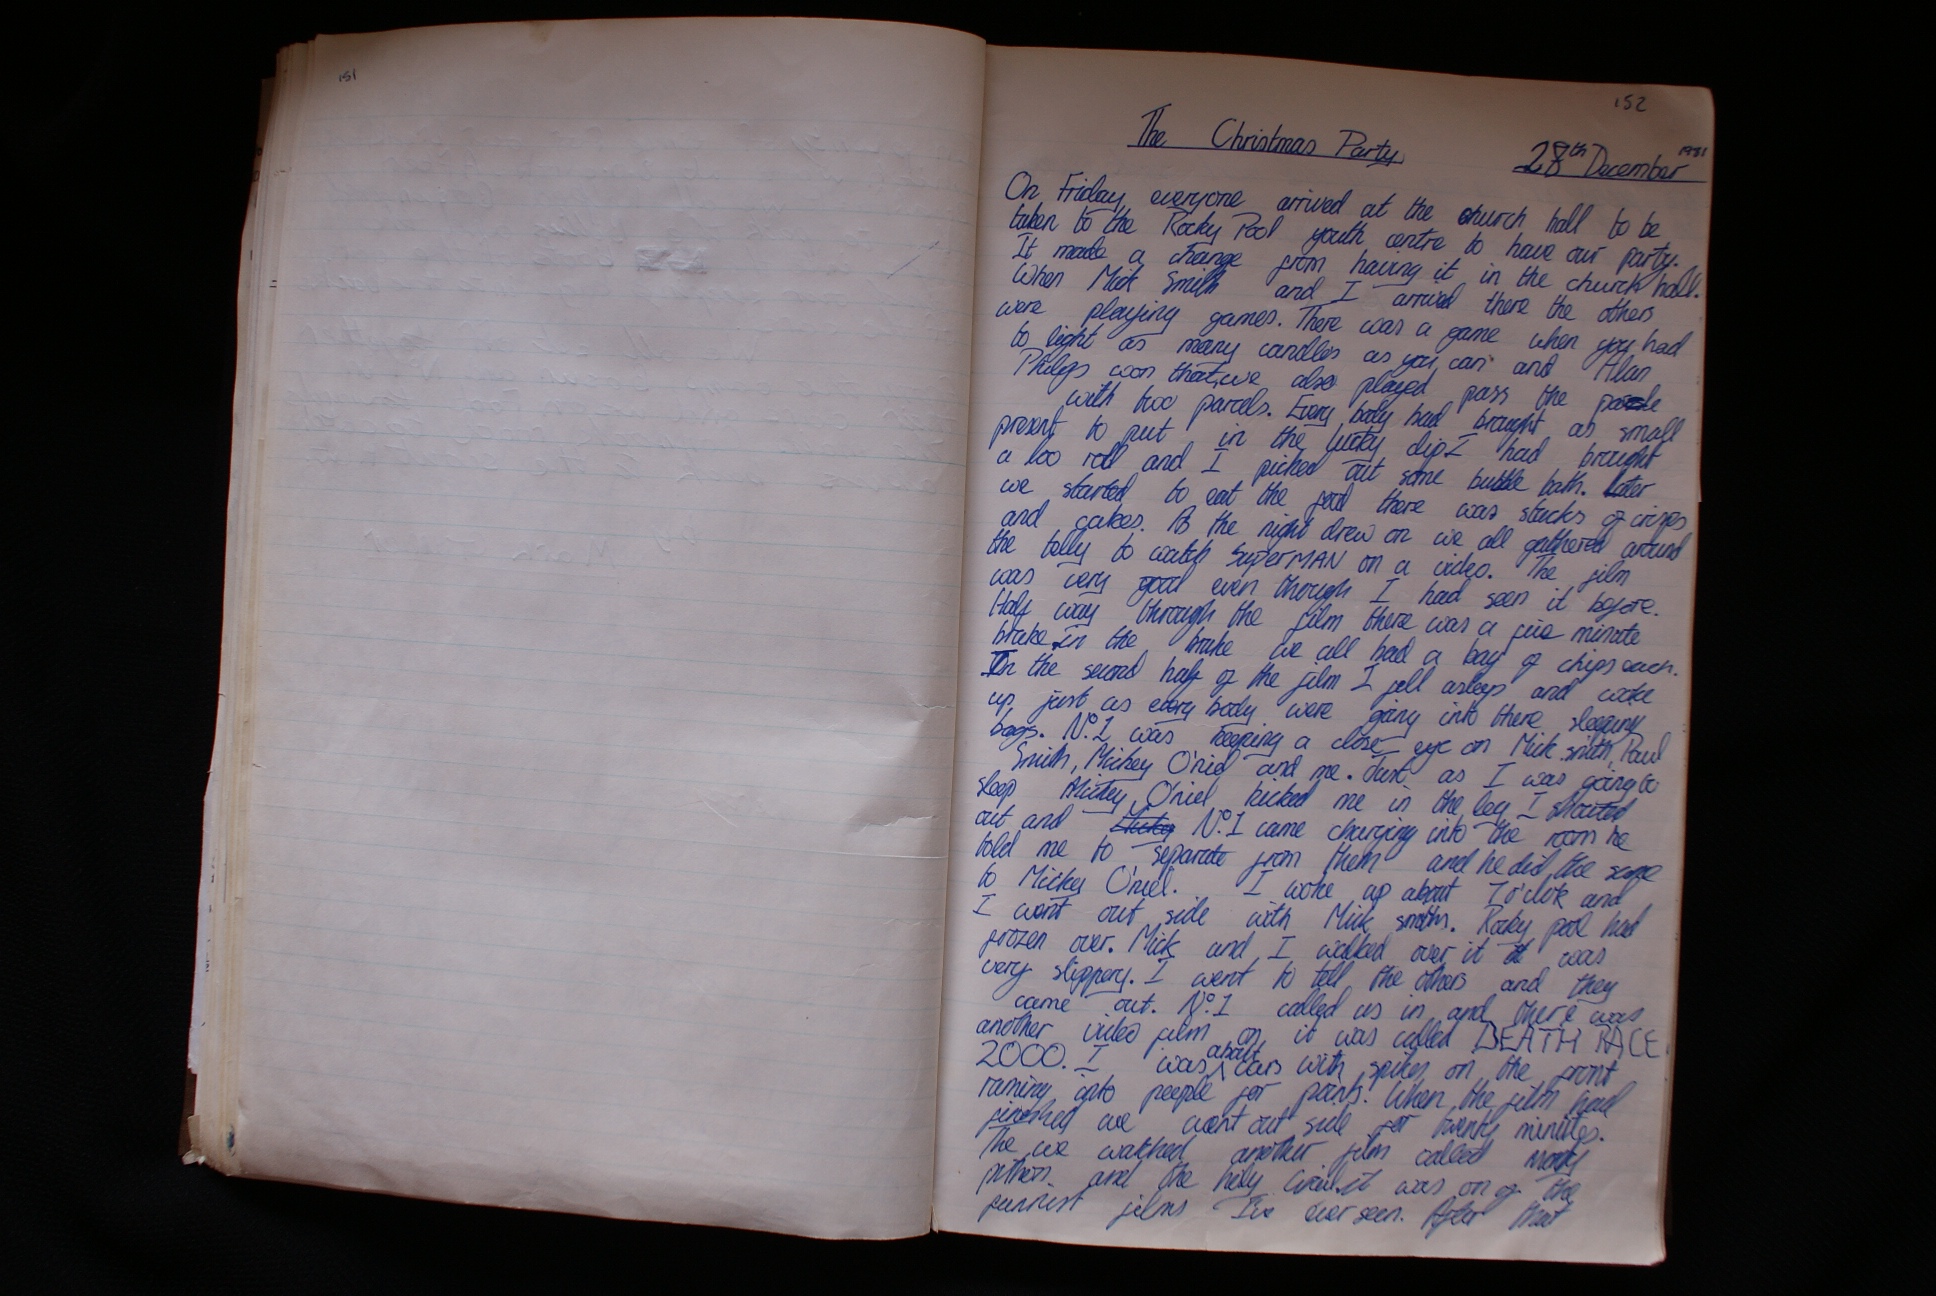 151
152
The Christmas Party
28th December 1981
On Friday everyone arrived at the church hall to be
taken to the Rocky Pool youth centre to have our party.
It made a change from having it in the church hall.
When Mick Smith and I arrived there the others
were playing games. There was a game when you had
to light as many candles as you can and Alan
Philips won that, we also played pass the
with two parcels. Every body had brought as small
present to put in the lucky dip I had brought
a loo roll and I picked out some bubble bath. Later
we started to eat the food there was stacks of crisps
and cakes. As the night drew on we all gathered around
the telly to watch SUPERMAN on a video. The film
was very good even though I had seen it before.
Half way through the film there was a five minute
brake. In the brake we all had a bag of chips each.
In the second half of the film I fell asleep and woke
up just as every body were going into there sleeping
bags. No.1 was keeping a close eye on Mick smith, Paul
Smith, Mickey O'niel and me. Just as I was going to
sleep Mickey O'niel kicked me in the leg I shouted
out and No.1 came charging into the room he
told me to separate from them and he did the same
to Mickey O'niel. I woke up about 7 o'clok and
I went out side with Mick smith. Rocky pool had
frozen over. Mick and I walked over it it was
very slippery. I went to tell the others and they
came out. No.1 called us in and there was
another video film on it was called DEATH RACE
2000. I was about cars with spikes on the front
raming into people for points. When the film had
finished we went out side for twenty minutes.
The we watched another film called monty
python and the holy Grail. it was on of the
funnist films I've ever seen. After that